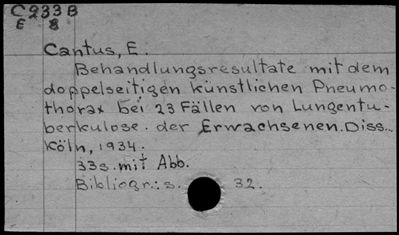 C233B
E 8
Cantus, E.
Behandlungsresultate mit dem
doppelseitigen künstlichen Pneumo-
thorax bei 23 Fällen von Lungentu-
berkulose der Erwachsenen. Diss.
Köln, 1934.
33s. mit Abb.
Bibliogr.: s. 32.